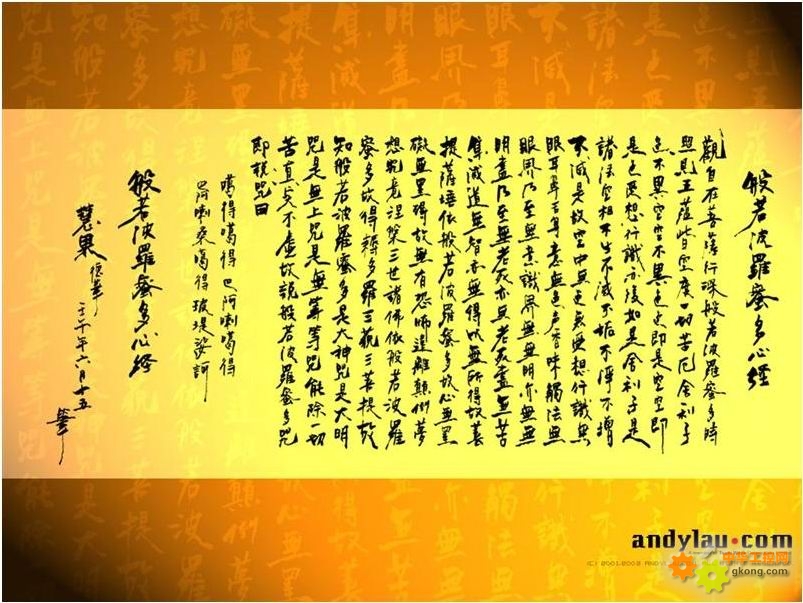 般若波羅蜜多心經
觀自在菩薩行深般若波羅蜜多時
照見五蘊皆空度一切苦厄舍利子
色不異空空不異色色即是空空即
是色受想行識亦復如是舍利子是
諸法空相不生不滅不垢不淨不增
不減是故空中無色無受想行識無
眼耳鼻舌身意無色声香味觸法無
眼界乃至無意識界無無明亦無無
明盡乃至無老死亦無老死盡無苦
集滅道無智亦無得以無所得故菩
提薩埵依般若波羅蜜多故心無罣
礙無罣礙故無有恐怖遠離顛倒夢
想究竟涅槃三世諸佛依般若波羅
蜜多故得耨多羅三藐三菩提故
知般若波羅蜜多是大神咒是大明
咒是無上咒是無等等咒能除一切
苦真实不虛故說般若波羅蜜多咒
即說咒曰
噶得噶得 巴阿喇噶得
巴阿喇桑噶得 玻堤娑訶
般若波羅蜜多心经
慧果 德華 二千年六月十五 華
andylau.com
(C) 2001-2002 ANDY
gkong.com